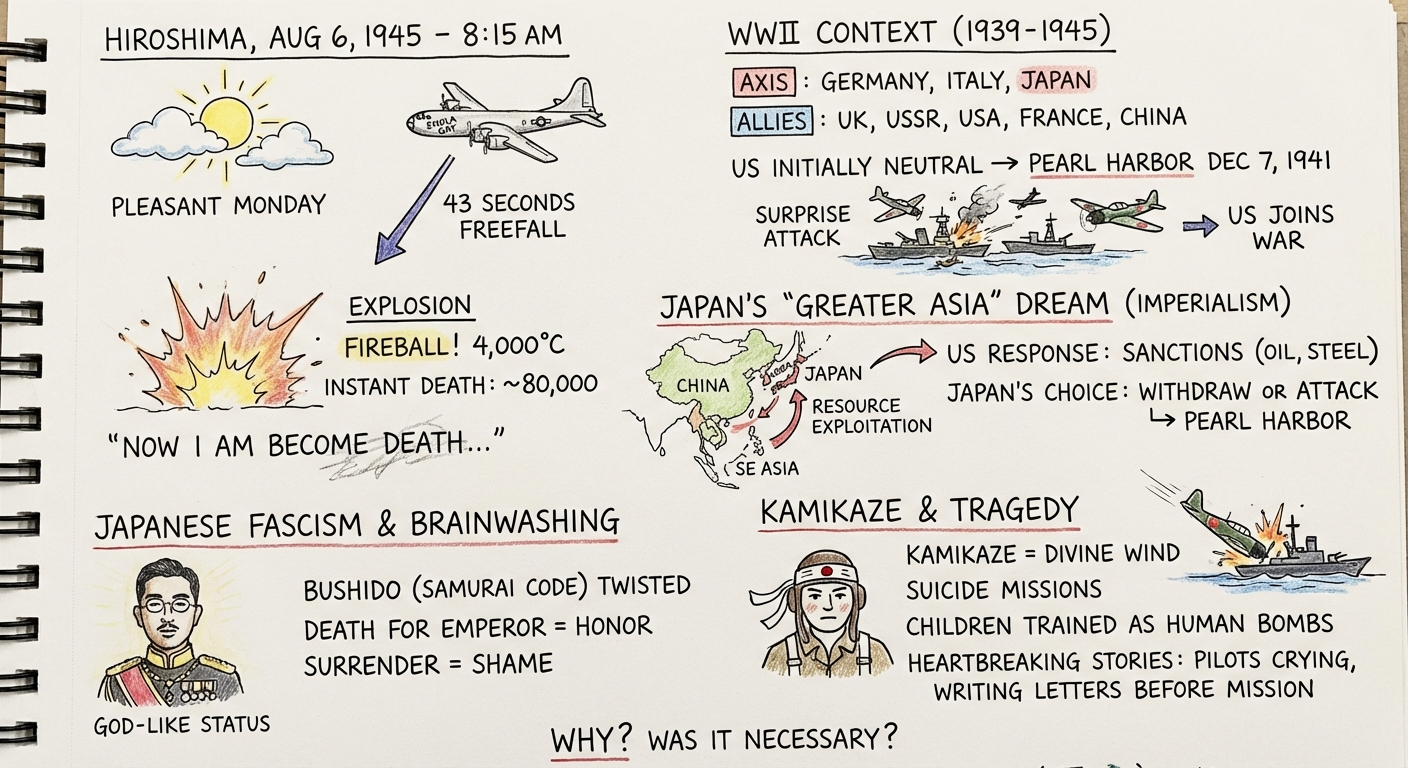 HIROSHIMA, AUG 6, 1945 – 8:15 AM
ENOLA
GAY
PLEASANT MONDAY
43 SECONDS
FREEFALL
EXPLOSION
FIREBALL! 4,000°C
INSTANT DEATH: ~80,000
"NOW I AM BECOME DEATH..."
WWII CONTEXT (1939-1945)
AXIS: GERMANY, ITALY, JAPAN
ALLIES: UK, USSR, USA, FRANCE, CHINA
US INITIALLY NEUTRAL → PEARL HARBOR DEC 7, 1941
SURPRISE
ATTACK
US JOINS
WAR
JAPAN'S "GREATER ASIA" DREAM (IMPERIALISM)
CHINA
JAPAN
RESOURCE
EXPLOITATION
SE ASIA
US RESPONSE: SANCTIONS (OIL, STEEL)
JAPAN'S CHOICE: WITHDRAW OR ATTACK
↳ PEARL HARBOR
JAPANESE FASCISM & BRAINWASHING
BUSHIDO (SAMURAI CODE) TWISTED
DEATH FOR EMPEROR = HONOR
SURRENDER = SHAME
GOD-LIKE STATUS
KAMIKAZE & TRAGEDY
KAMIKAZE = DIVINE WIND
SUICIDE MISSIONS
CHILDREN TRAINED AS HUMAN BOMBS
HEARTBREAKING STORIES: PILOTS CRYING,
WRITING LETTERS BEFORE MISSION
WHY? WAS IT NECESSARY?